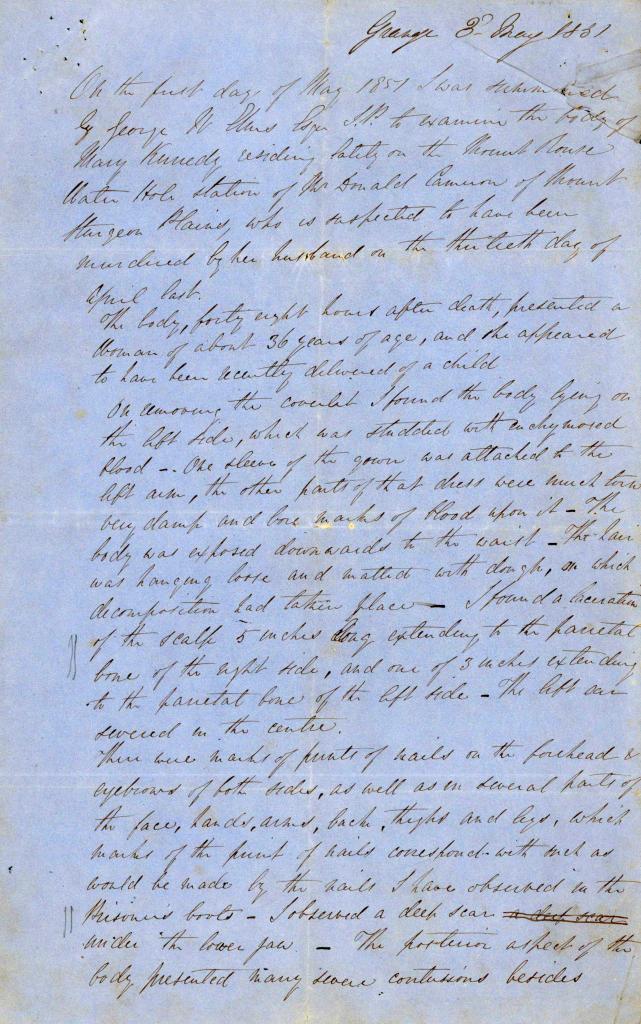 Grange 3d May 1851
On the first day of May 1851 I was summoned
by George N Elms Esqr J.P. to examine the body of
Mary Kennedy residing lately on the Mount Rouse
Water Hole station of Mr Donald Cameron of Mount
Sturgeon Plains, who is suspected to have been
murdered by her husband on the thirtieth day of
April last.
The body, forty eight hours after death, presented a
Woman of about 36 years of age, and she appeared
to have been recently delivered of a child
On removing the coverlet I found the body lying on
the left side, which was studded with ecchymosed
blood -. One sleeve of the gown was attached to the
left arm, the other parts of that dress were much torn
very damp and bore marks of blood upon it - The
body was exposed downwards to the waist - The hair
was hanging loose and matted with dough, in which
decomposition had taken place - I found a laceration
of the scalp 5 inches long extending to the parietal
bone of the right side, and one of 3 inches extending
to the parietal bone of the left side - The left ear
severed in the centre.
There were marks of prints of nails on the forehead &
eyebrows of both sides, as well as on several parts of
the face, hands, arms, back, thighs and legs, which
marks of the print of nails correspond with such as
would be made by the nails I have observed in the
Prisoners boots - I observed a deep scar a deep scar
under the lower jaw - The posterior aspect of the
body presented many severe contusions besides